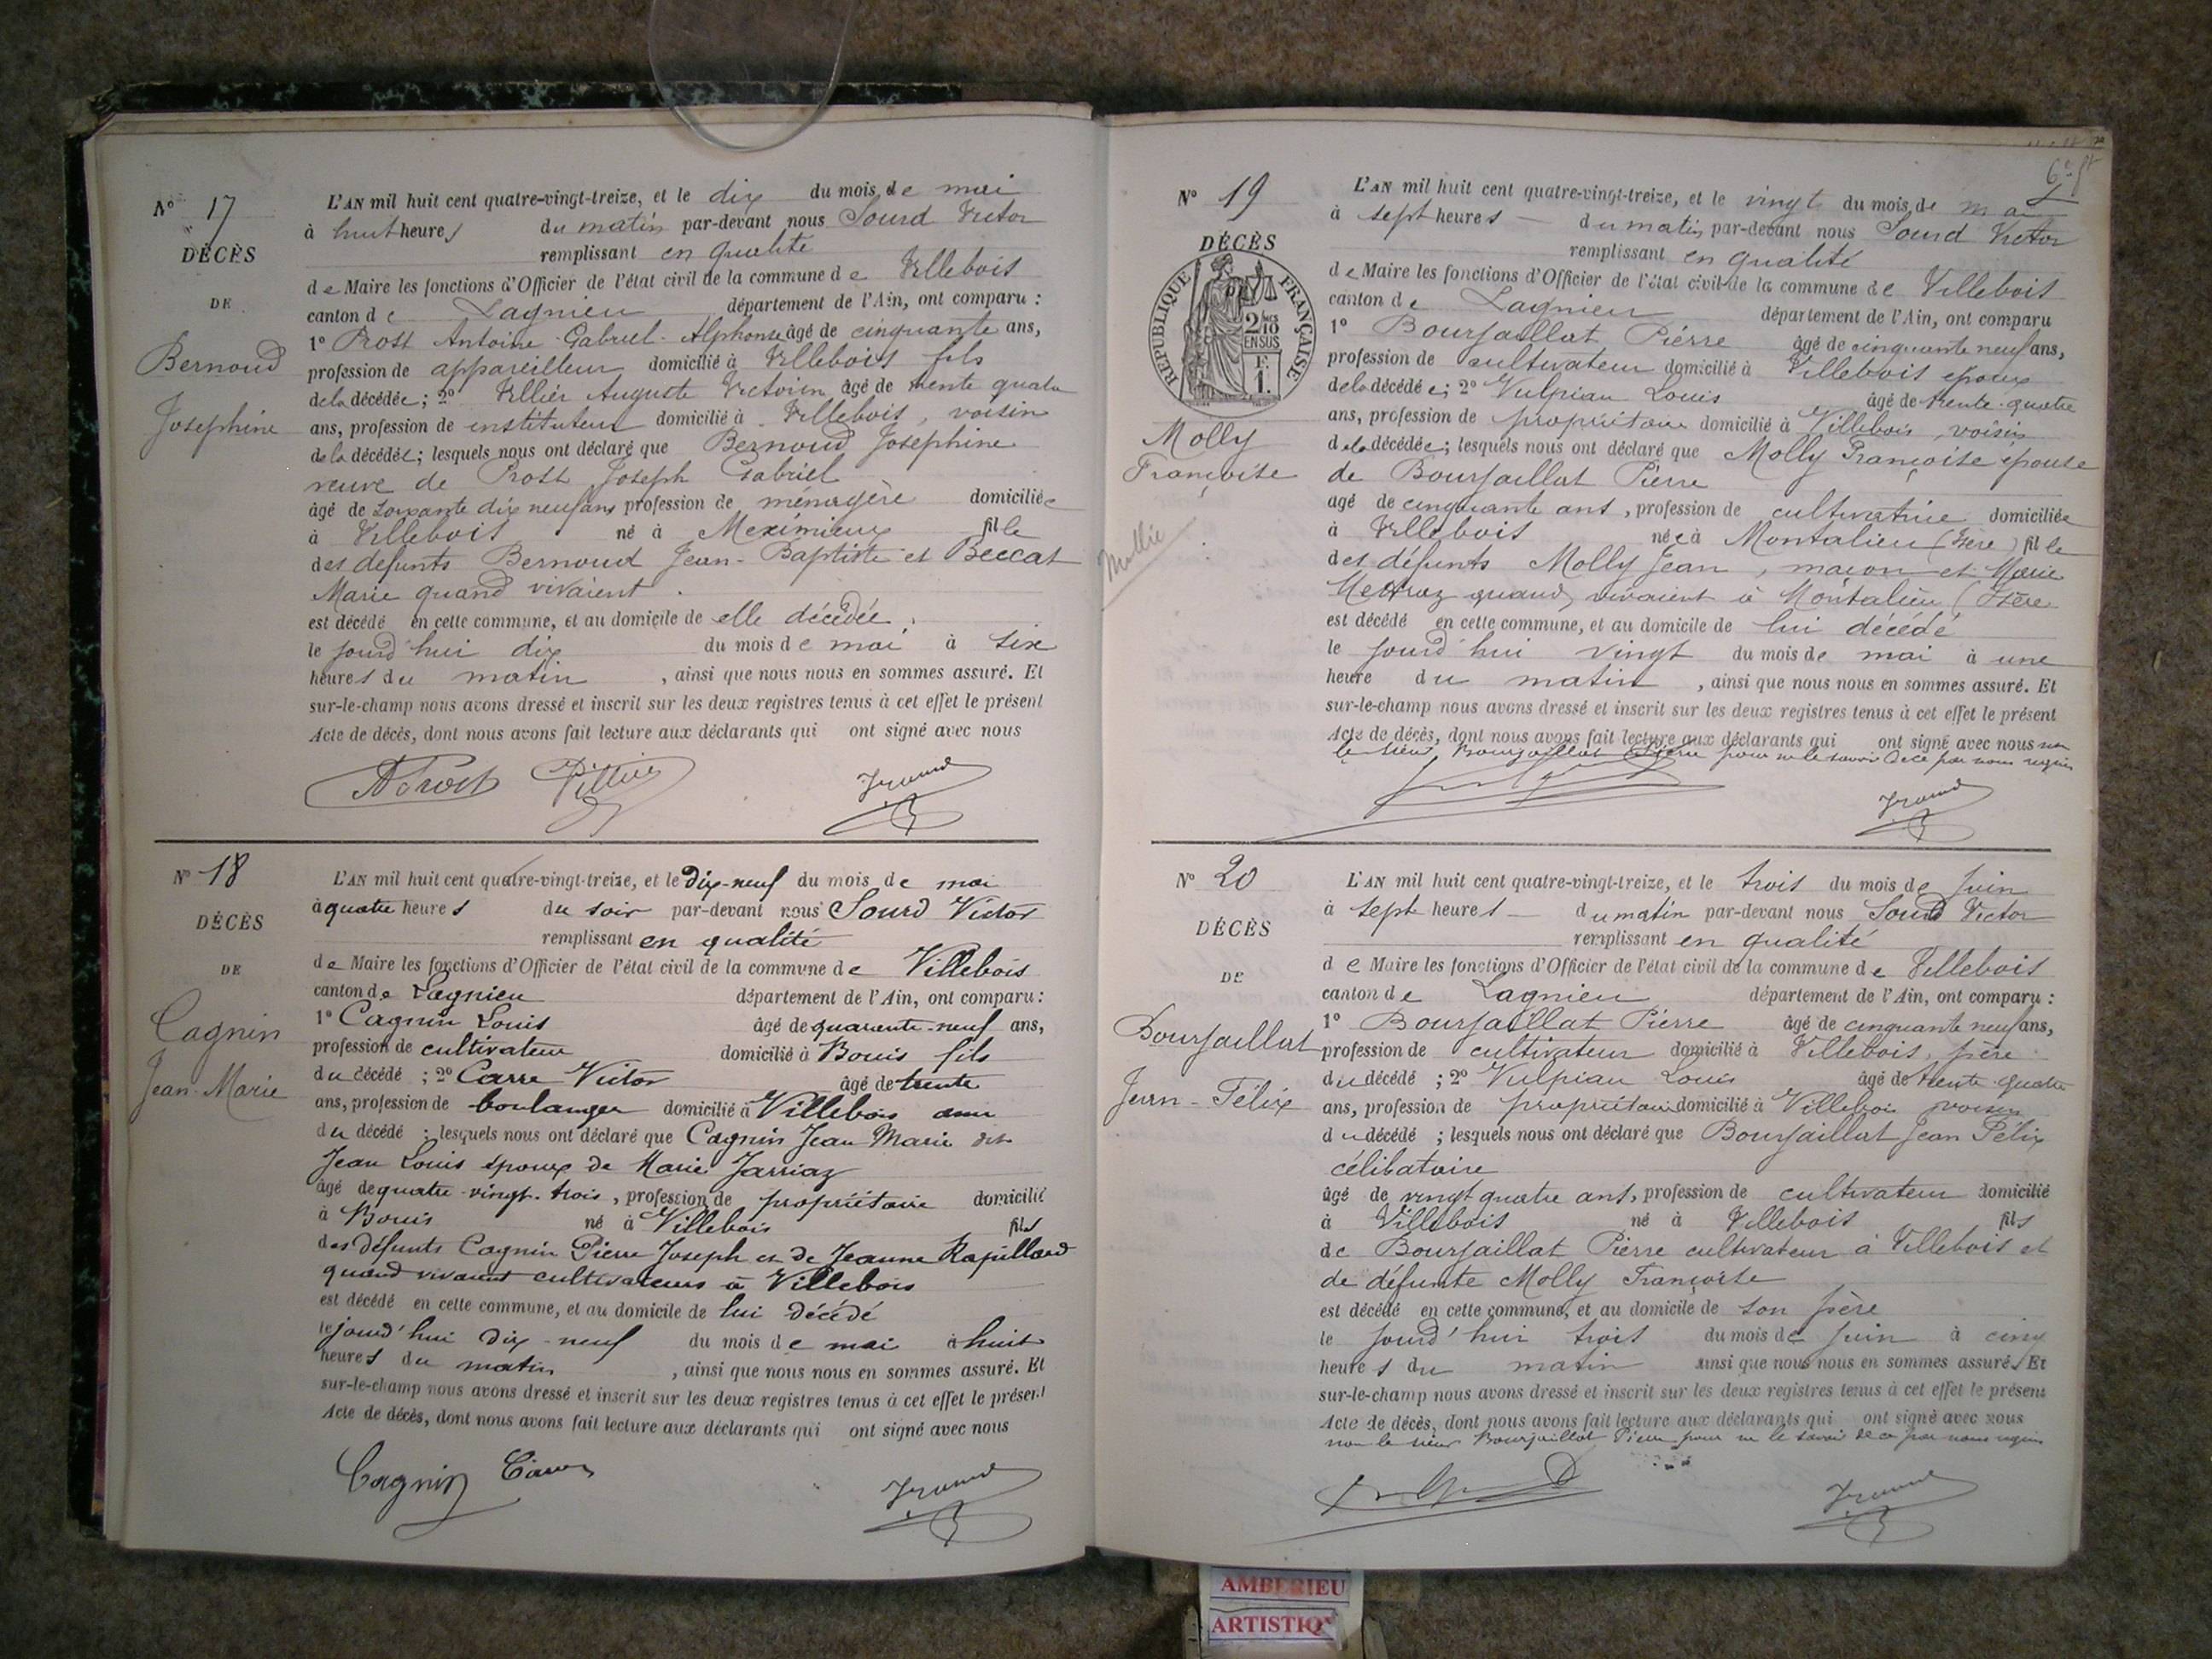 N° 17
DÉCÈS
DE
Bernoud
Josephine
L'AN mil huit cent quatre-vingt-treize, et le dix du mois de mai
à huit heures du matin par-devant nous Sourd Victor
remplissant en qualité
de Maire les fonctions d'Officier de l'état civil de la commune de Villebois
canton de Lagnieu département de l'Ain, ont comparu :
1° Prost Antoine Gabriel Alphonse âgé de cinquante ans,
profession de appareilleur domicilié à Villebois fils
de la décédée ; 2° Villier Auguste Victorin âgé de trente quatre
ans, profession de instituteur domicilié à Villebois, voisin
de la décédée ; lesquels nous ont déclaré que Bernoud Josephine
veuve de Prost Joseph Gabriel
âgé de soixante dix neuf ans profession de ménagère domiciliée
à Villebois né à Meximieux fille
des defunts Bernoud Jean-Baptiste et Beccat
Marie quand vivaient.
est décédé en cette commune, et au domicile de elle décédée,
le jourd'hui dix du mois de mai à six
heures du matin, ainsi que nous nous en sommes assuré. Et
sur-le-champ nous avons dressé et inscrit sur les deux registres tenus à cet effet le présent
Acte de décès, dont nous avons fait lecture aux déclarants qui ont signé avec nous
AProst Villier
N° 18
DÉCÈS
DE
Cagnin
Jean-Marie
L'AN mil huit cent quatre-vingt-treize, et le dix-neuf du mois de mai
à quatre heures du soir par-devant nous Sourd Victor
remplissant en qualité
de Maire les fonctions d'Officier de l'état civil de la commune de Villebois
canton de Lagnieu département de l'Ain, ont comparu :
1° Cagnin Louis âgé de quarante-neuf ans,
profession de cultivateur domicilié à Bouis fils
du décédé ; 2° Carre Victor âgé de trente
ans, profession de boulanger domicilié à Villebois ami
du décédé ; lesquels nous ont déclaré que Cagnin Jean Marie dit
Jean Louis époux de Marie Jarriaz
âgé de quatre-vingt-trois, profession de propriétaire domicilié
à Bouis né à Villebois fils
des défunts Cagnin Pierre Joseph et de Jeanne Rapillard
quand vivaient cultivateurs à Villebois
est décédé en cette commune, et au domicile de lui décédé
le jourd'hui dix-neuf du mois de mai à huit
heures du matin, ainsi que nous nous en sommes assuré. Et
sur-le-champ nous avons dressé et inscrit sur les deux registres tenus à cet effet le présent
Acte de décès, dont nous avons fait lecture aux déclarants qui ont signé avec nous
Cagnin
N° 19
DÉCÈS
RÉPUBLIQUE FRANÇAISE
2/10 EN SUS
F.
1.
Molly
Françoise
Mollie
L'AN mil huit cent quatre-vingt-treize, et le vingt du mois de mai
à sept heures du matin par-devant nous Sourd Victor
remplissant en qualité
de Maire les fonctions d'Officier de l'état civil de la commune de Villebois
canton de Lagnieu département de l'Ain, ont comparu
1° Boursaillat Pierre âgé de cinquante neuf ans,
profession de cultivateur domicilié à Villebois epoux
de la décédée ; 2° Vulpian Louis âgé de trente-quatre
ans, profession de propriétaire domicilié à Villebois, voisin
de la décédée ; lesquels nous ont déclaré que Molly Françoise épouse
de Boursaillat Pierre
agé de cinquante ans, profession de cultivatrice domiciliée
à Villebois née à Montalieu (Isère) fille
des défunts Molly Jean, maçon et Marie
quand vivaient à Montalieu (Isère
est décédé en cette commune, et au domicile de lui décédé
le jourd'hui vingt du mois de mai à une
heure du matin, ainsi que nous nous en sommes assuré. Et
sur-le-champ nous avons dressé et inscrit sur les deux registres tenus à cet effet le présent
Acte de décès, dont nous avons fait lecture aux déclarants qui ont signé avec nous non
le sieur Boursaillat Pierre pour ne le savoir de ce par nous requis
N° 20
DÉCÈS
DE
Boursaillat
Jean-Félix
L'AN mil huit cent quatre-vingt-treize, et le trois du mois de juin
à sept heures du matin par-devant nous Sourd Victor
remplissant en qualité
de Maire les fonctions d'Officier de l'état civil de la commune de Villebois
canton de Lagnieu département de l'Ain, ont comparu :
1° Boursaillat Pierre âgé de cinquante neuf ans,
profession de cultivateur domicilié à Villebois, père
du décédé ; 2° Vulpian Louis âgé de trente-quatre
ans, profession de propriétaire domicilié à Villebois voisin
du décédé ; lesquels nous ont déclaré que Boursaillat Jean Félix
célibataire
âgé de vingt quatre ans, profession de cultivateur domicilié
à Villebois né à Villebois fils
de Boursaillat Pierre cultivateur à Villebois et
de défunte Molly Françoise
est décédé en cette commune, et au domicile de son père
le jourd'hui trois du mois de juin à cinq
heures du matin ainsi que nous nous en sommes assuré. Et
sur-le-champ nous avons dressé et inscrit sur les deux registres tenus à cet effet le présent
Acte de décès, dont nous avons fait lecture aux déclarants qui ont signé avec nous
non le sieur Boursaillat Pierre pour ne le savoir de ce par nous requis
AMBERIEU
ARTISTIQ